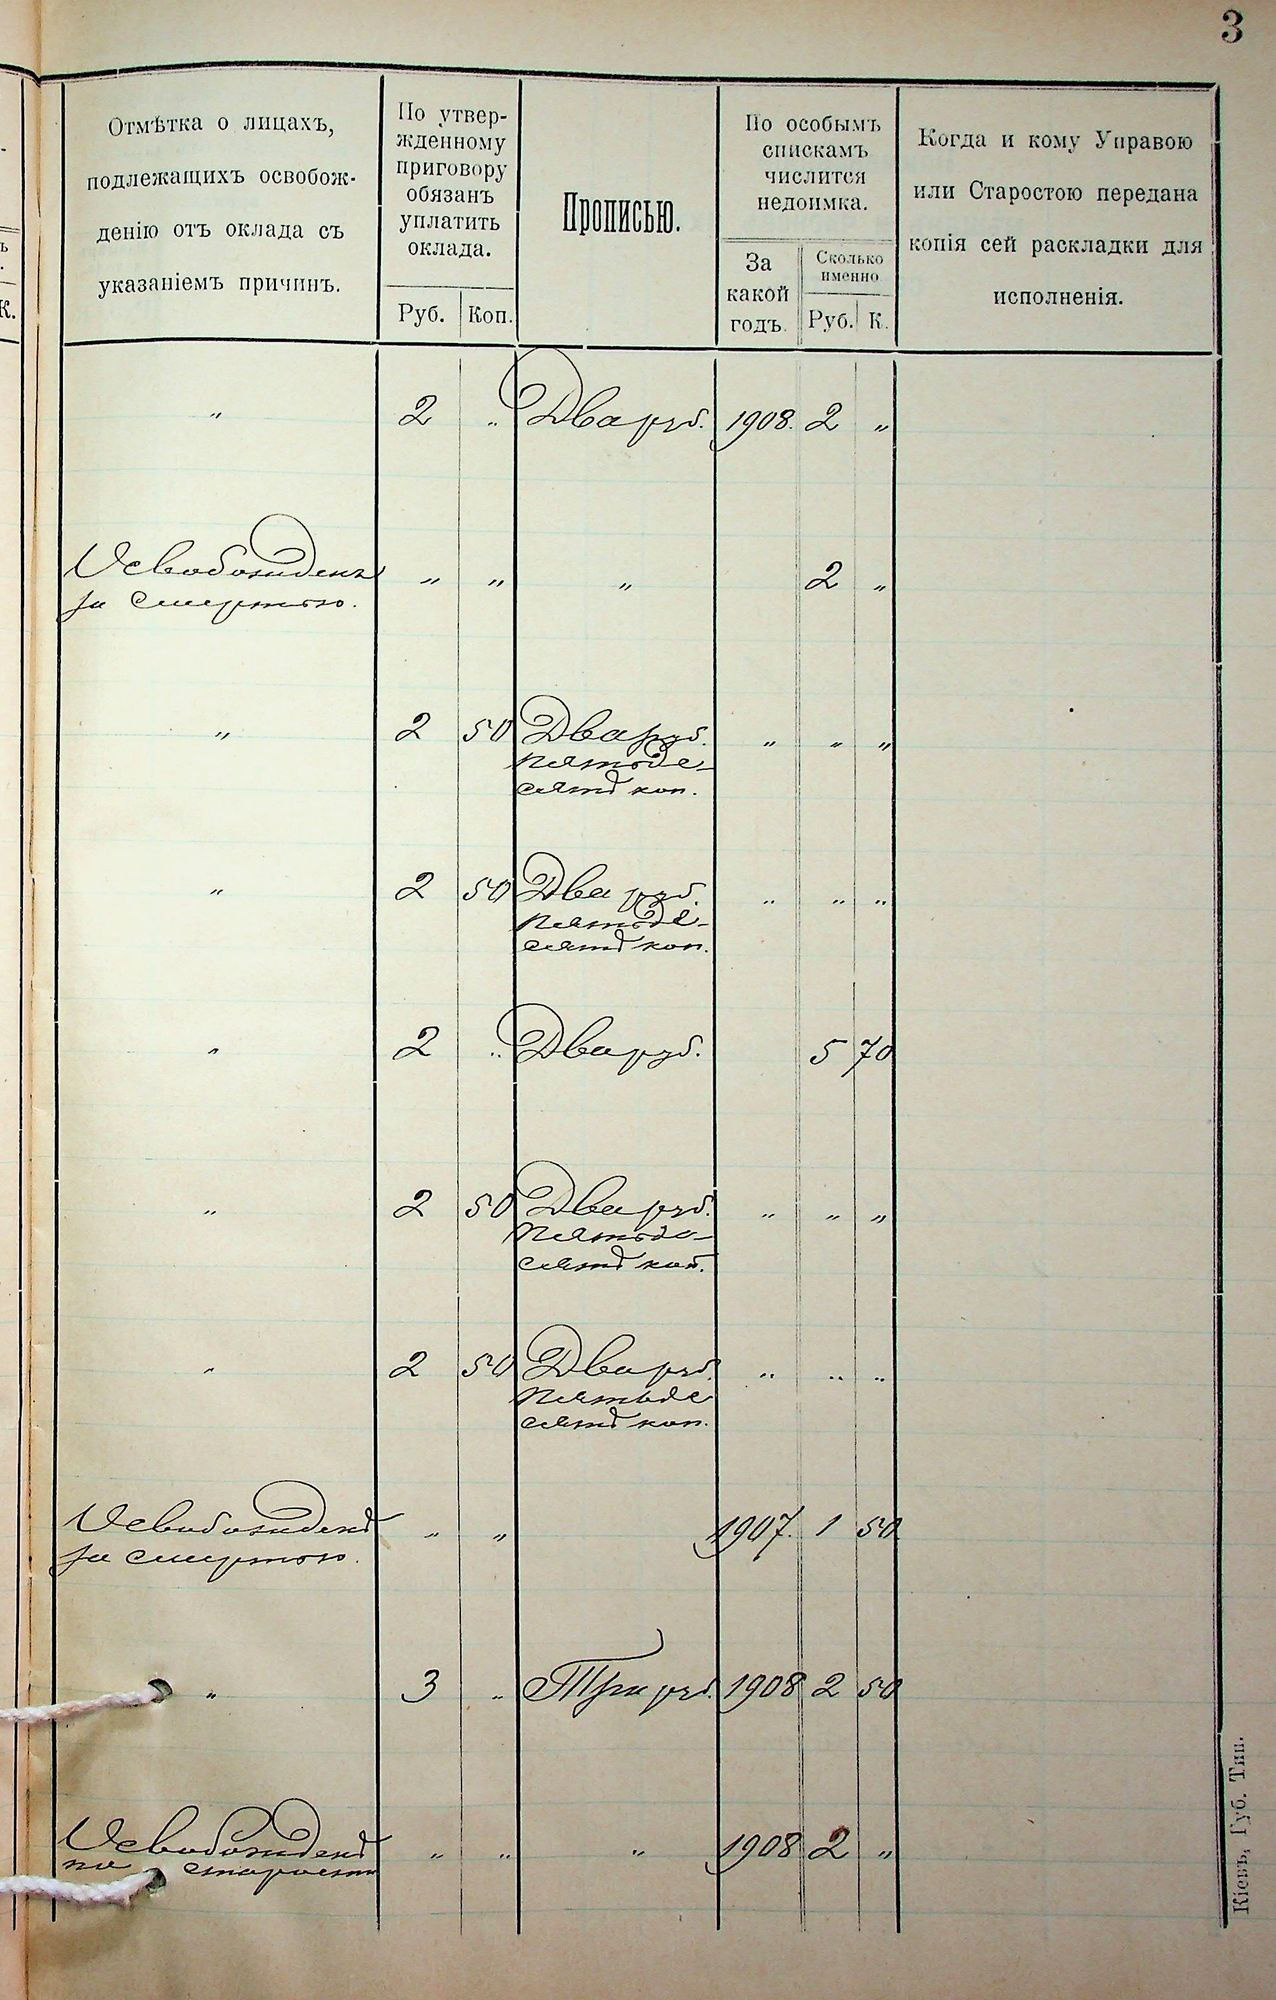 3
Отмѣтка о лицахъ,
подлежащихъ освобож-
денію отъ оклада съ
указаніемъ причинъ.
По утвер-
жденному
приговору
обязанъ
уплатить
оклада.
Руб. Коп.
Прописью.
По особымъ
спискамъ
числится
недоимка.
За
какой
годъ.
Сколько
именно
Руб. К.
Когда и кому Управою
или Старостою передана
копія сей раскладки для
исполненія.
К.
„ 2 „ Два руб. 1908. 2 „
Освобожденъ „ „ „ 2 „
за смертью.
„ 2 50 Два руб. „ „ „
пятьде-
сятъ коп.
„ 2 50 Два руб. „ „ „
пятьде-
сятъ коп.
„ 2 „ Два руб. 5 70
„ 2 50 Два руб. „ „ „
пятьде-
сятъ коп.
„ 2 50 Два руб. „ „ „
пятьде
сятъ коп.
Освобожденъ „ „ 1907. 1 50
за смертью.
„ 3 „ Три руб. 1908 2 50
Освобожденъ „ „ „ 1908 2 „
по старости
Кіевъ, Губ. Тип.